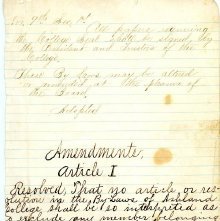 The papers requiring
the College Seal shall be signed by
the President and Trustees of the
College.
These By Laws may be altered
or amended at the pleasure of
the Board.
Adopted
Amendments,
Article I
Resolved, That no article or res-
olution in the By Laws of Ashland
College shall be so interpreted as
to exclude any member belonging